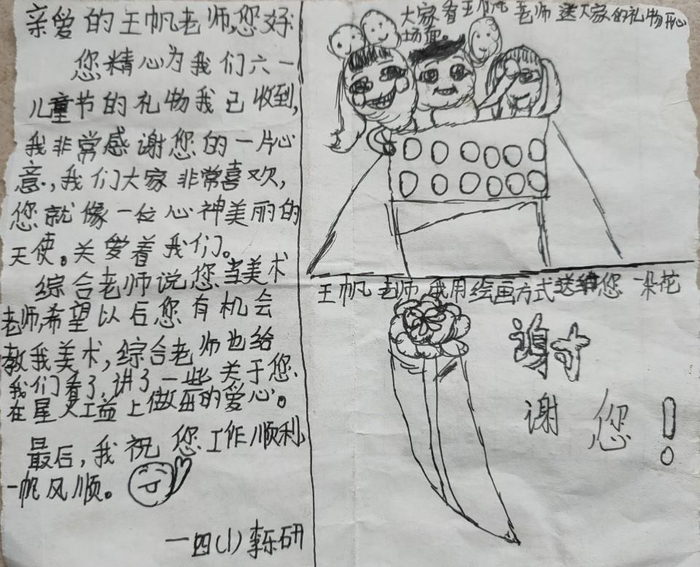 亲爱的王帆老师,您好
您精心为我们六一
儿童节的礼物我已收到,
我非常感谢您的一片心
意,我们大家非常喜欢,
您就像一位心神美丽的
天使。关爱着我们。
综合老师说您当美术
老师,希望以后您有机会
教我美术,综合老师也给
我们看了讲了一些关于您
在星火工益上做出的爱心。
最后,我祝您工作顺利
一帆风顺。
一四(1)李东研
大家看王帆老师送大家的礼物开心
场面。
王帆老师我用绘画方式送给您一朵花
谢谢您!